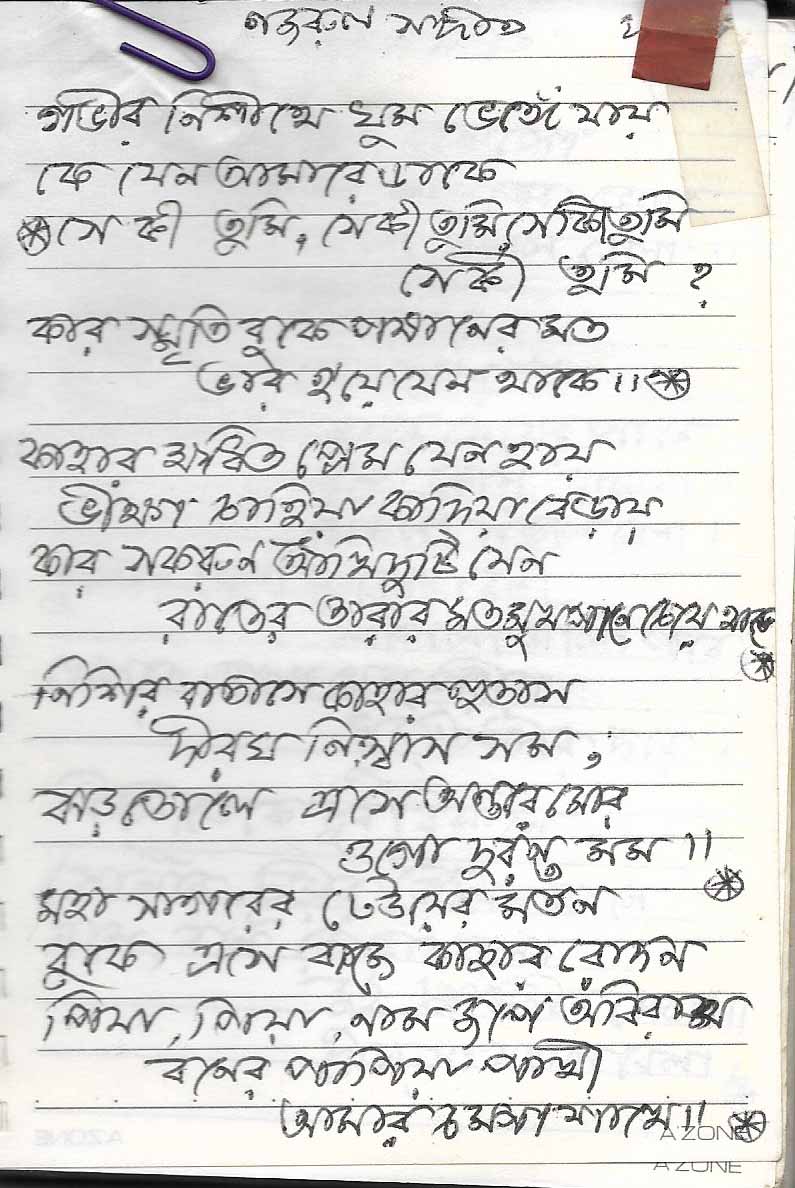 নজরুল সঙ্গীত
গভীর নিশীথে ঘুম ভেঙ্গে যায়
কে যেন আমারে ডাকে
সে কী তুমি, সে কী তুমি, সে কি তুমি
সে কী তুমি ?
কার স্মৃতি বুকে পাষানের মত
ভার হয়ে যেন থাকে ।।
কাহার ক্ষুধিত প্রেম যেন হায়
ভীক্ষা চাহিয়া কাদিয়া বেড়ায়
কার সকরুন আঁখি দুটি যেন
রাতের তারার মত মুখপানে চেয়ে থাকে
নিশির বাতাসে কাহার হুতাস
দীরঘ নিঃশ্বাস সম,
ঝড় তোলে এসে অন্তরে মোর
ওগো দুরন্ত মম ।।
মহা সাগরের ঢেউয়ের মতন
বুকে এসে বাজে কাহার রোদন
পিয়া, পিয়া, নাম জপে অবিরাম
বনের পাপিয়া পাখী
আমার চম্পা শাখে ।।
A ZONE
A ZONE